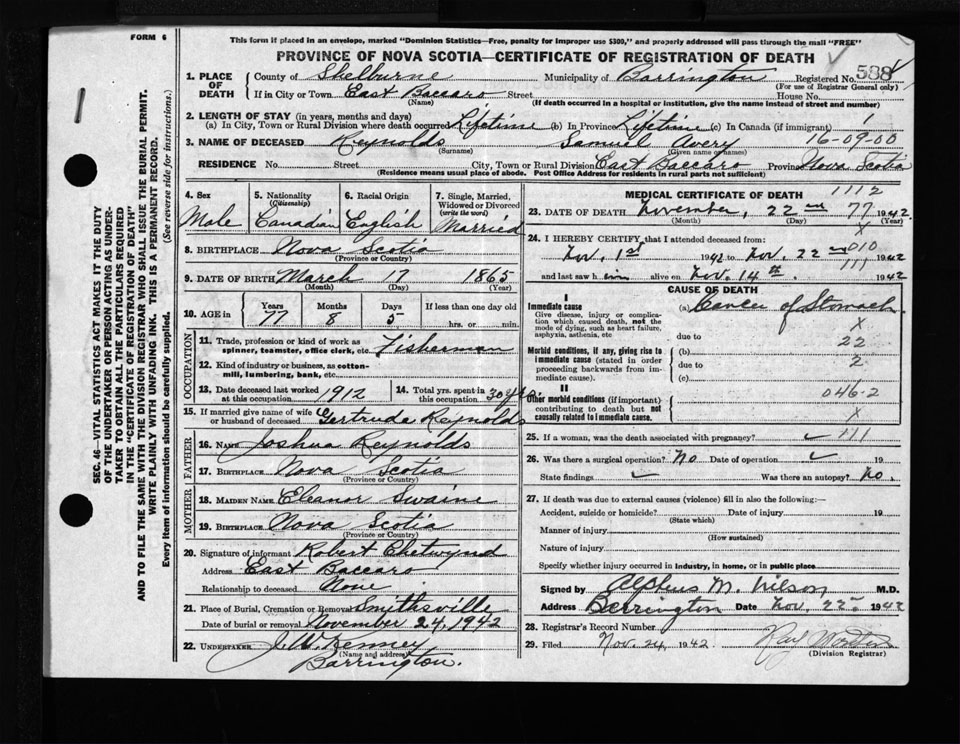 FORM 6
This form if placed in an envelope, marked "Dominion Statistics—Free, penalty for improper use $300," and properly addressed will pass through the mail "FREE"
PROVINCE OF NOVA SCOTIA—CERTIFICATE OF REGISTRATION OF DEATH
SEC. 46—VITAL STATISTICS ACT MAKES IT THE DUTY
OF THE UNDERTAKER OR PERSON ACTING AS UNDER-
TAKER TO OBTAIN ALL THE PARTICULARS REQUIRED
IN THE "CERTIFICATE OF REGISTRATION OF DEATH"
AND TO FILE THE SAME WITH THE DIVISION REGISTRAR WHO SHALL ISSUE THE BURIAL PERMIT.
WRITE PLAINLY WITH UNFADING INK. THIS IS A PERMANENT RECORD.
Every item of information should be carefully supplied. (See reverse side for instructions.)
1. PLACE OF DEATH County of Shelburne Municipality of Barrington Registered No. 588
(For use of Registrar General only)
If in City or Town East Baccaro Street House No.
(Name) (If death occurred in a hospital or institution, give the name instead of street and number)
2. LENGTH OF STAY (in years, months and days)
(a) In City, Town or Rural Division where death occurred Lifetime (b) In Province Lifetime (c) In Canada (if immigrant) 1
3. NAME OF DECEASED Reynolds Samuel Avery 16-09-00
(Surname) (Given name or names)
RESIDENCE No. Street City, Town or Rural Division East Baccaro Province Nova Scotia
(Residence means usual place of abode. Post Office Address for residents in rural parts not sufficient)
4. Sex Male
5. Nationality (Citizenship) Canadian
6. Racial Origin English
7. Single, Married, Widowed or Divorced (write the word) Married
8. BIRTHPLACE Nova Scotia
(Province or Country)
9. DATE OF BIRTH March 17 1865
(Month) (Day) (Year)
10. AGE in Years 77 Months 8 Days 5 If less than one day old
hrs. or min.
OCCUPATION
11. Trade, profession or kind of work as spinner, teamster, office clerk, etc. Fisherman
12. Kind of industry or business, as cotton-mill, lumbering, bank, etc.
13. Date deceased last worked at this occupation 1912
14. Total yrs. spent in this occupation 30 yrs
15. If married give name of wife or husband of deceased Gertruda Reynolds
FATHER
16. NAME Joshua Reynolds
17. BIRTHPLACE Nova Scotia
(Province or Country)
MOTHER
18. MAIDEN NAME Eleanor Swaine
19. BIRTHPLACE Nova Scotia
(Province or Country)
20. Signature of informant Robert Chetwynd
Address East Baccaro
Relationship to deceased None
21. Place of Burial, Cremation or Removal Smithsville
Date of burial or removal November 24, 1942
22. UNDERTAKER J. W. Kenney
(Name and address)
Barrington.
MEDICAL CERTIFICATE OF DEATH 1112
23. DATE OF DEATH November, 22nd 77 1942
(Month) (Day) (Year)
X
24. I HEREBY CERTIFY that I attended deceased from: 010
Nov. 1st 1942 to Nov. 22nd 1942
111
and last saw him alive on Nov. 14th 1942
CAUSE OF DEATH
I
Immediate cause (a) Cancer of Stomach
Give disease, injury or complication which caused death, not the mode of dying, such as heart failure, asphyxia, asthenia, etc
X
due to 22
Morbid conditions, if any, giving rise to immediate cause (stated in order proceeding backwards from immediate cause). (b)
due to 2
(c)
II
Other morbid conditions (if important) contributing to death but not causally related to immediate cause. 046-2
25. If a woman, was the death associated with pregnancy? ✓ 111
26. Was there a surgical operation? No Date of operation ✓ 19
State findings ✓ Was there an autopsy? No.
27. If death was due to external causes (violence) fill in also the following:—
Accident, suicide or homicide? Date of injury 19
(State which)
Manner of injury
(How sustained)
Nature of injury
Specify whether injury occurred in industry, in home, or in public place
Signed by Alphus M. Wilson M.D.
Address Barrington Date Nov. 22nd 1942
28. Registrar's Record Number
29. Filed Nov. 24 1942 Ray
(Division Registrar)